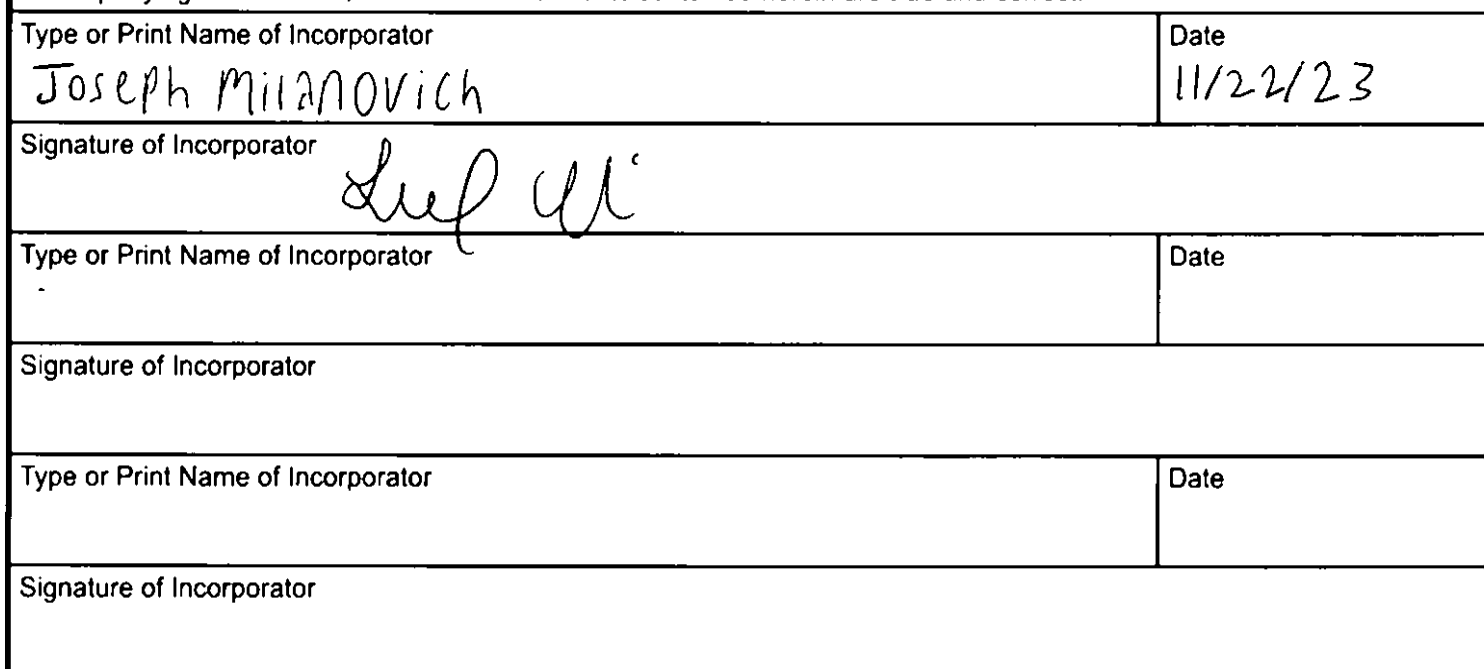 Type or Print Name of Incorporator
Date
Joseph Milanovich
11/22/23
Signature of Incorporator
Type or Print Name of Incorporator
Date
Signature of Incorporator
Type or Print Name of Incorporator
Date
Signature of Incorporator